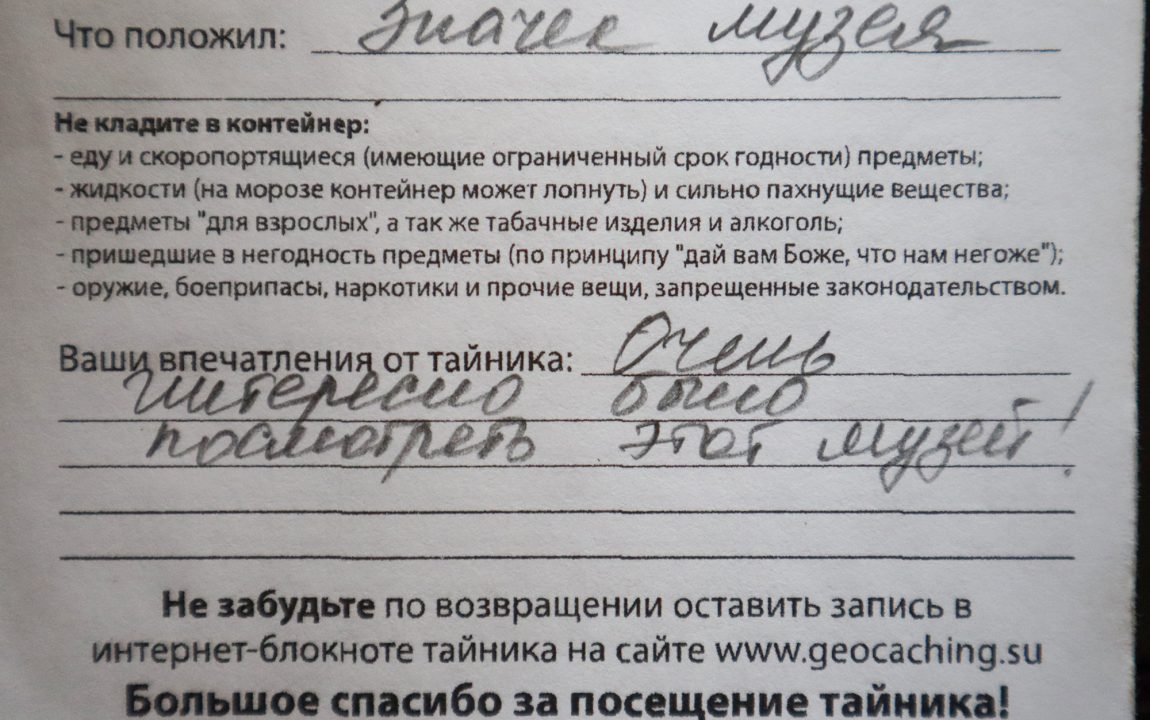 Что положил: Значек музея
Не кладите в контейнер:
- еду и скоропортящиеся (имеющие ограниченный срок годности) предметы;
- жидкости (на морозе контейнер может лопнуть) и сильно пахнущие вещества;
- предметы "для взрослых", а так же табачные изделия и алкоголь;
- пришедшие в негодность предметы (по принципу "дай вам Боже, что нам негоже");
- оружие, боеприпасы, наркотики и прочие вещи, запрещенные законодательством.
Ваши впечатления от тайника: Очень
интересно было
посмотреть этот музей!
Не забудьте по возвращении оставить запись в
интернет-блокноте тайника на сайте www.geocaching.su
Большое спасибо за посещение тайника!